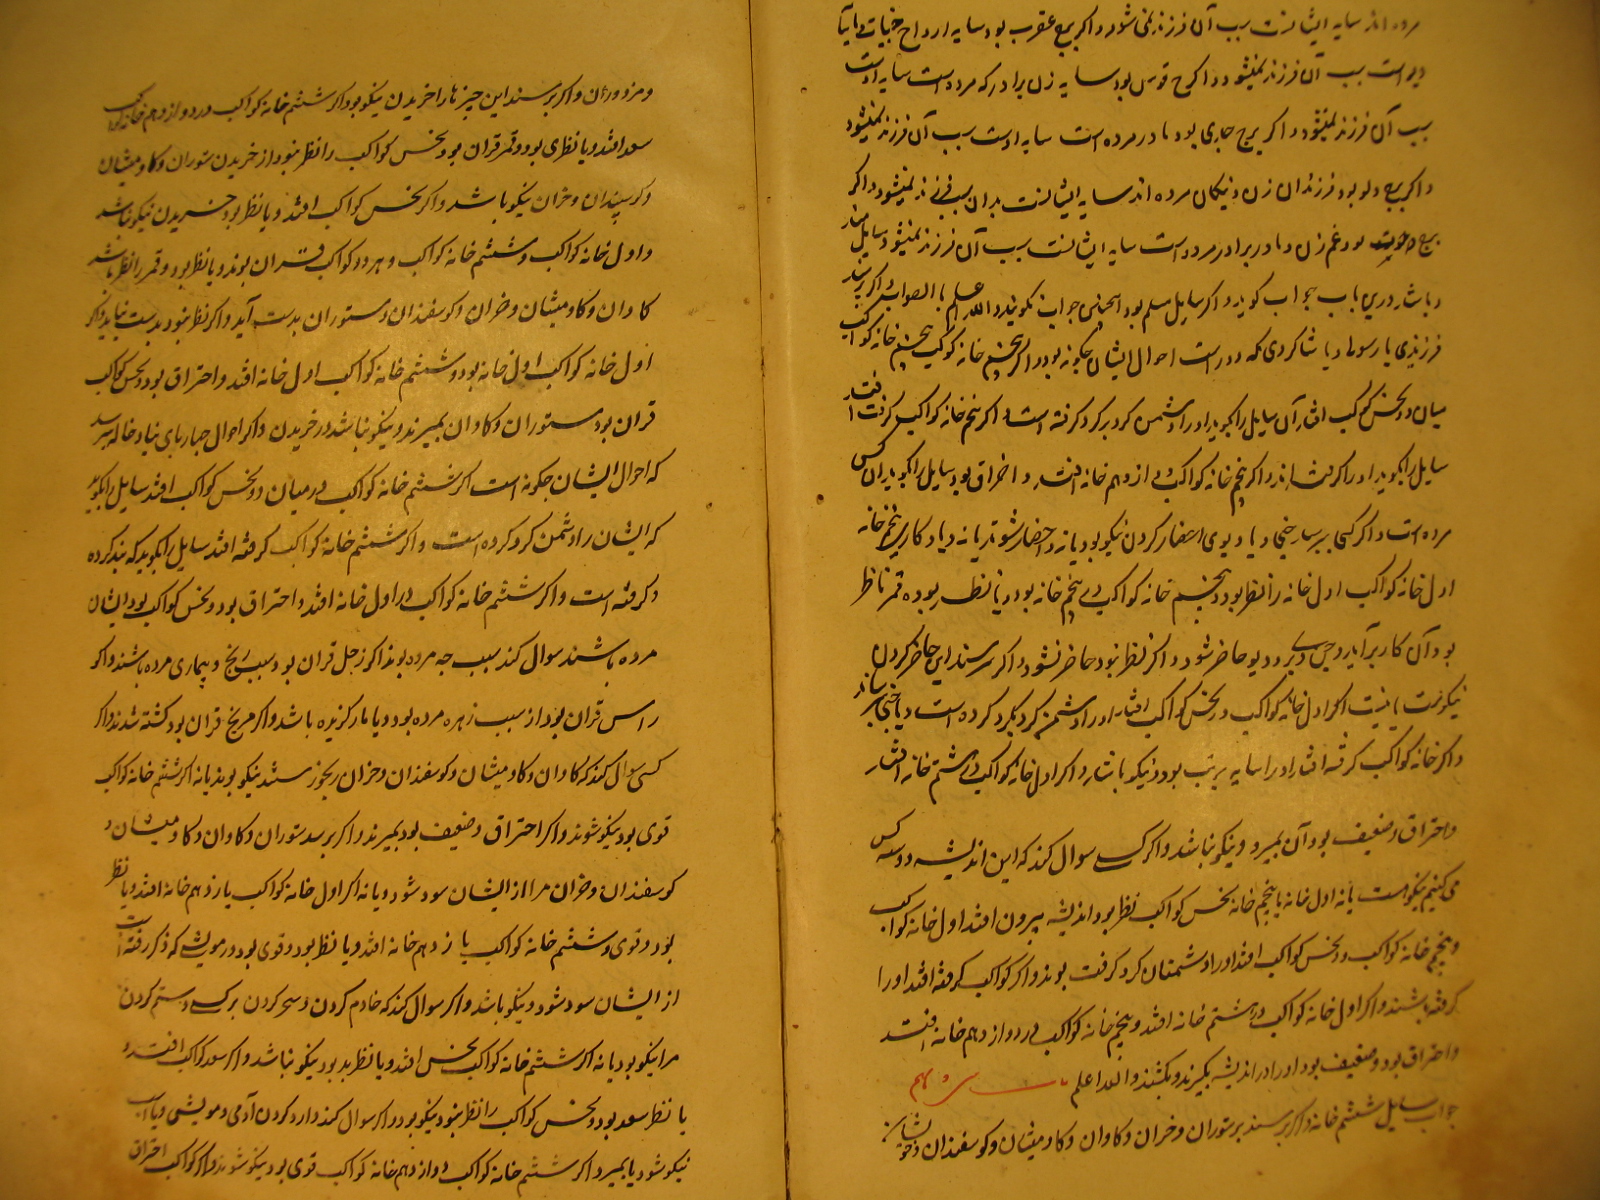 مرده اند سایه ایشانست سبب آن فرزند نمی شود و اکر برج عقرب بود سایه ارواح
دیو است سبب آن فرزند نمیشود و اکر برج قوس بود سایه زن برادر که مرده است سایه اوست
سبب آن فرزند نمیشود و اکر برج جدی بود مادر مرده است سایه اوست سبب آن فرزند نمیشود
و اکر برج دلو بود فرزندان زن و نیکان مرده اند سایه ایشانست بدان سبب فرزند نمیشود و اکر
برج حوت بود عم زن و مادر برادر مرده است سایه ایشانست سبب آن فرزند نمیشود و سایل
باشد درین باب جواب کوید و اکر سایل مسلم بود همچنین جواب نکویند والله اعلم بالصواب و اکر پرسند
فرزندی یا رسولی و یا شاکردی که دور است احوال ایشان چکونه بود اکر پنجم خانه کواکب پنجم خانه کواکب
میان دو نحس کواکب افتد آن سایل را بکوید او را دشمن کرد بر کرد کرفته است و اکر پنجم خانه کواکب کرفت
سایل را بکوید او را کرفته اند و اکر پنجم خانه کواکب در دوازدهم خانه افتد و احتراق بود سایل را بکوید آن کس
مرده است و اکر کسی بپرسد جنی و یا دیوی احضار کردن نیکو بود یا نه و احضار شوند یا نه و یا کاری پنجم خانه
اول خانه کواکب اول خانه را نظر بود و پنجم خانه کواکب در پنجم خانه بود و یا نظر بود و قمر ناظر
بود آن کار برآید و جن و دیو حاضر شود و اکر نظر نبود حاضر نشود و اکر پرسند این حاضر کردن
نیکو است یا نیست اکر اول خانه کواکب در نحس کواکب افتد او را دشمن کرد بکرد کرده است
و اکر خانه کواکب کرفته افتد او را سایه بود و نیکو باشد و اکر اول خانه کواکب در هشتم خانه افتد
و احتراق و ضعیف بود آن بمیرد و نیکو نباشد و اکر کسی سوال کند که این اندیشه دو سه کس
می کنیم نیکو هست یا نه اول خانه با پنجم خانه نحس کواکب نظر بود اندیشه بیرون افتد اول خانه کواکب
و پنجم خانه کواکب و نحس کواکب افتد او را دشمنان کرد کرفت بوند و اکر کواکب کرفته افتد او را
کرفته باشند و اکر اول خانه کواکب در هشتم خانه افتد و پنجم خانه کواکب در دوازدهم خانه افتد
و احتراق بود و ضعیف بود او را در اندیشه بکیرند و بکشند والله اعلم
جواب سایل ششم خانه و اکر پرسند بر ستوران و خران و کاوان و کاومیشان و کوسفندان
و مزدوران و اکر پرسند این چیزها را خریدن نیکو بود اکر ششم خانه کواکب در دوازدهم خانه
سعد افتد و یا نظری بود و قمر قران بود و نحس کواکب را نظر نبود از خریدن ستوران و کاومیشان
و کوسپندان و خران نیکو باشد و اکر نحس کواکب افتد و یا نظر بود خریدن نیکو نباشد
و اول خانه کواکب و ششم خانه کواکب و هر دو کواکب قران بوند و یا نظر بود و قمر را نظر باشد
کاوان و کاومیشان و خران و کوسفندان و ستوران بدست آید و اکر نظر نبود بدست نیاید و اکر
اول خانه کواکب اول خانه بود و ششم خانه کواکب اول خانه افتد و احتراق بود و نحس کواکب
قران بود ستوران و کاوان بمیرند و نیکو نباشد در خریدن و اکر احوال چهارپای بنیاد خانه پرسد
که احوال ایشان چکونه است اکر ششم خانه کواکب در میان دو نحس کواکب افتد سایل را بکوید
که ایشان را دشمن کرد کرده است و اکر ششم خانه کواکب کرفته افتد سایل را بکوید که بند کرده
و کرفته است و اکر ششم خانه کواکب در اول خانه افتد و احتراق بود و نحس کواکب بود ایشان
مرده باشند سوال کند سبب چه مرده بوند اکر زحل قران بود سبب رنج و بیماری مرده باشند و اکر
راس قران بود از سبب زهره مرده بود و یا مار کزیده باشد و اکر مریخ قران بود کشته شدند و اکر
کسی سوال کند که کاوان و کاومیشان و کوسفندان و خران رنجور هستند نیکو بوند یا نه اکر ششم خانه کواکب
قوی بود نیکو شوند و اکر احتراق و ضعیف بود بمیرند و اکر پرسد ستوران و کاوان و کاومیشان و
کوسفندان و خران مرا از ایشان سود شود و یا نه اکر اول خانه کواکب یازدهم خانه افتد و یا نظر
بود و قوی و ششم خانه کواکب یازدهم خانه افتد و یا نظر بود و قوی بود در مویشی که ذکر رفته است
از ایشان سود شود و نیکو باشد و اکر سوال کند که خادم کردن و سحر کردن بر کسی و ستم کردن
مرا نیکو بود یا نه اکر ششم خانه کواکب نحس افتد و یا نظر بد بود نیکو نباشد و اکر سعد کواکب افتد و
یا نظر سعد بود و نحس کواکب را نظر نبود نیکو بود و اکر سوال کند دارو کردن آدمی و مویشی و یا اسب
نیکو شود یا بمیرد اکر ششم خانه کواکب در دوازدهم خانه کواکب قوی بود نیکو شوند و اکر کواکب احتراق